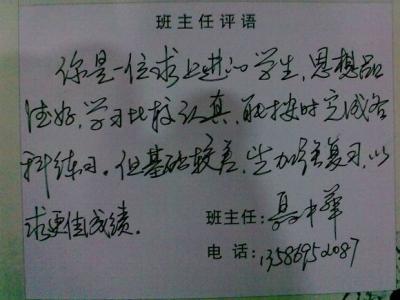 班主任评语
你是一位求上进的学生,思想品
德好,学习比较认真,能按时完成各
科练习。但基础较差,望加强复习,以
求更佳成绩。
班主任:聂中华
电话:13586952087